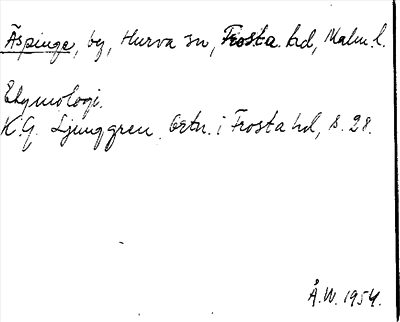 Äspinge, by, Hurva sn, Frosta hd, Malm. l.
Etymologi.
K.G. Ljunggren, Ortn. i Frosta hd, s. 28.
Å.W. 1954.